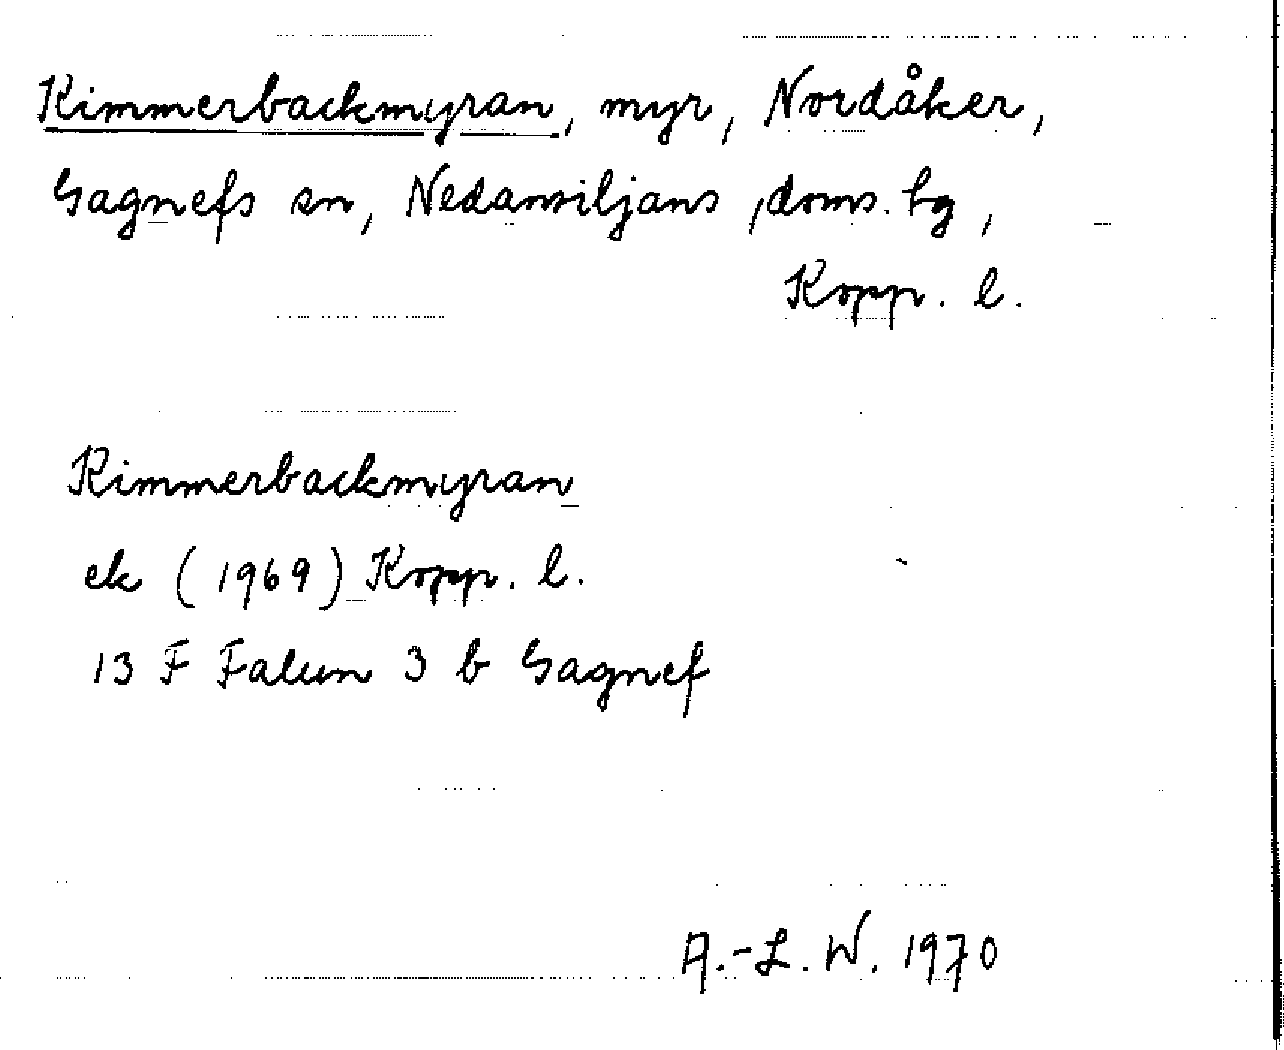 Kimmerbackmyran, myr, Nordåker,
Gagnefs sn, Nedansiljans, doms. tg,
Kopp. l.
Kimmerbackmyran
ek (1969) Kopp. l.
13 F Falun 3 b Gagnef
A.-L. W. 1970